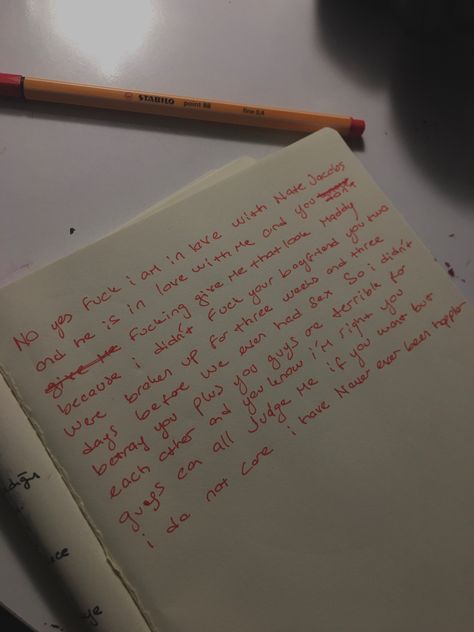 STABILO point 88 fine 0.4
No yes fuck i am in love with Nate Jacobs
and he is in love with me and you don't
give me fucking give me that look Maddy
because i didn't fuck your boyfriend you two
were broken up for three weeks and three
days before we even had sex so i didn't
betray you plus you guys are terrible for
each other and you know i'm right you
guys can all judge me if you want but
i do not care i have never ever been happier